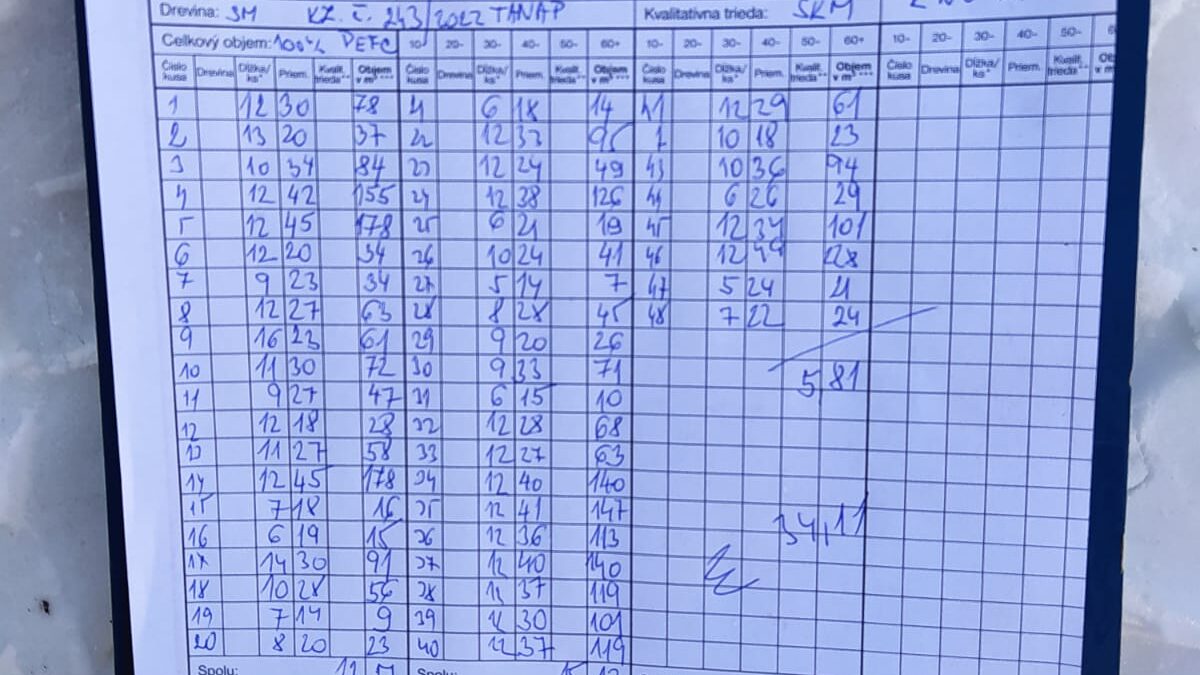 Drevina: SM KZ. č. 243/2022 TANAP Kvalitatívna trieda: SKM
Celkový objem: 100% PEFC 10- 20- 30- 40- 50- 60+ 10- 20- 30- 40- 50- 60+ 10- 20- 30- 40- 50-
Číslo kusa Drevina Dĺžka/ks* Priem. Kvalit. trieda** Objem v m³*** Číslo kusa Drevina Dĺžka/ks* Priem. Kvalit. trieda** Objem v m³*** Číslo kusa Drevina Dĺžka/ks* Priem. Kvalit. trieda** Objem v m³*** Číslo kusa Drevina Dĺžka/ks* Priem. Kvalit. trieda**
1 12 30 78 6 18 14 41 12 29 61
2 13 20 37 22 12 33 95 10 18 23
3 10 34 84 23 12 24 49 43 10 36 94
4 12 42 155 24 12 38 126 44 6 26 29
5 12 45 178 25 6 21 19 45 12 34 101
6 12 20 34 26 10 24 41 46 12
7 9 23 34 27 5 14 7 47 5 24 21
8 12 27 63 28 8 28 45 48 7 22 24
9 16 23 61 29 9 20 26
10 11 30 72 30 9 33 71 5,81
11 9 27 47 31 6 15 10
12 12 18 28 32 12 28 68
13 11 27 58 33 12 27 63
14 12 45 178 34 12 40 140
15 7 18 16 35 12 41 147
16 6 19 15 36 12 36 113 34,11
17 14 30 91 37 12 40 140
18 10 28 56 38 12 37 119
19 7 14 9 39 30 101
20 8 20 23 40 12 37 119
Spolu: Spolu: